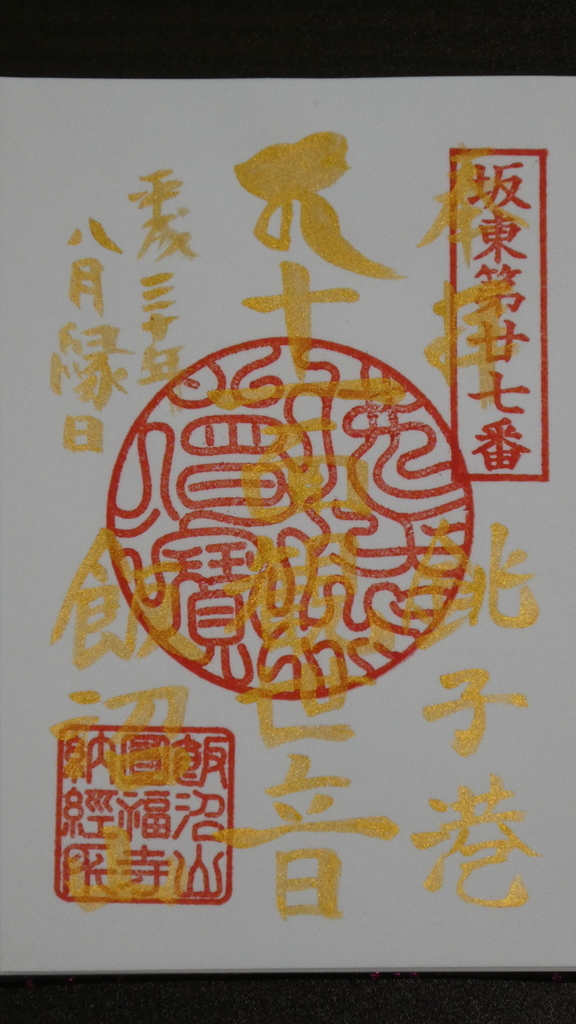 坂東第廿七番
奉拝
銚子港
十一面観世音
平成三十年
八月縁日
飯沼山
飯沼山
圓福寺
納經所